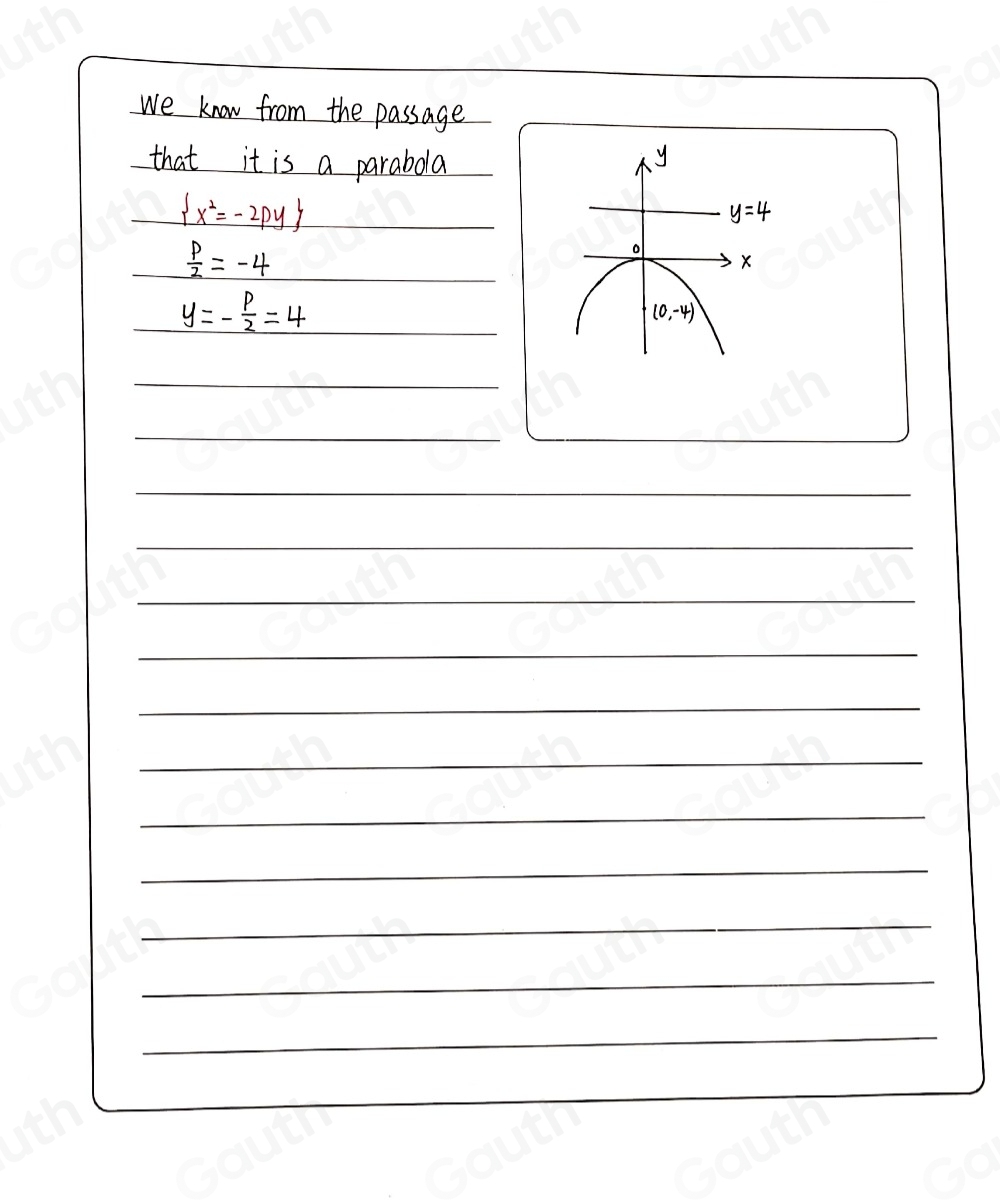 We know from the passage
that it is a parabola
{x²=-2py}
p/2 = -4
y = -p/2 = 4
y
y=4
0
x
(0,-4)
Gauth